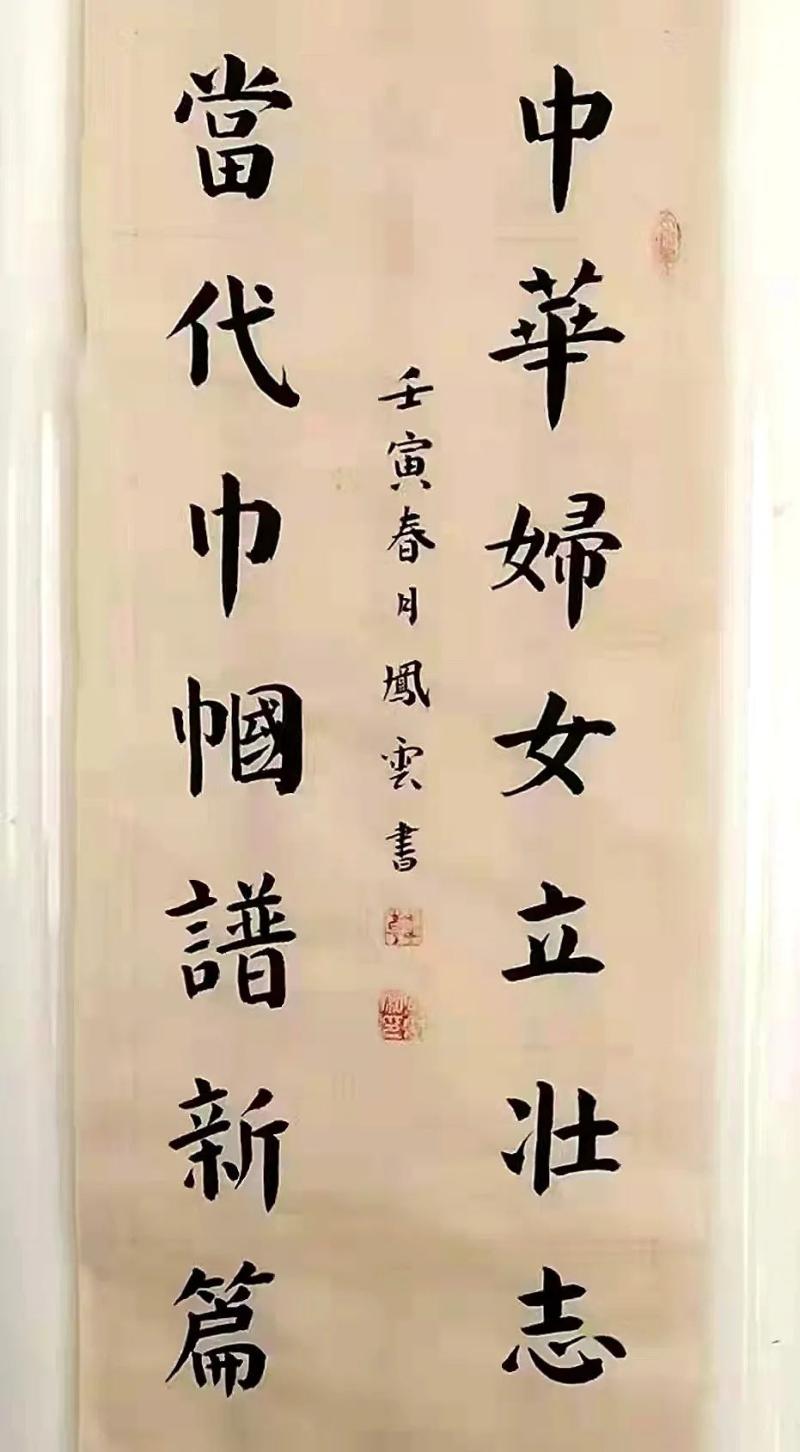 中華婦女立壯志
當代巾幗譜新篇
壬寅春月鳳雲書